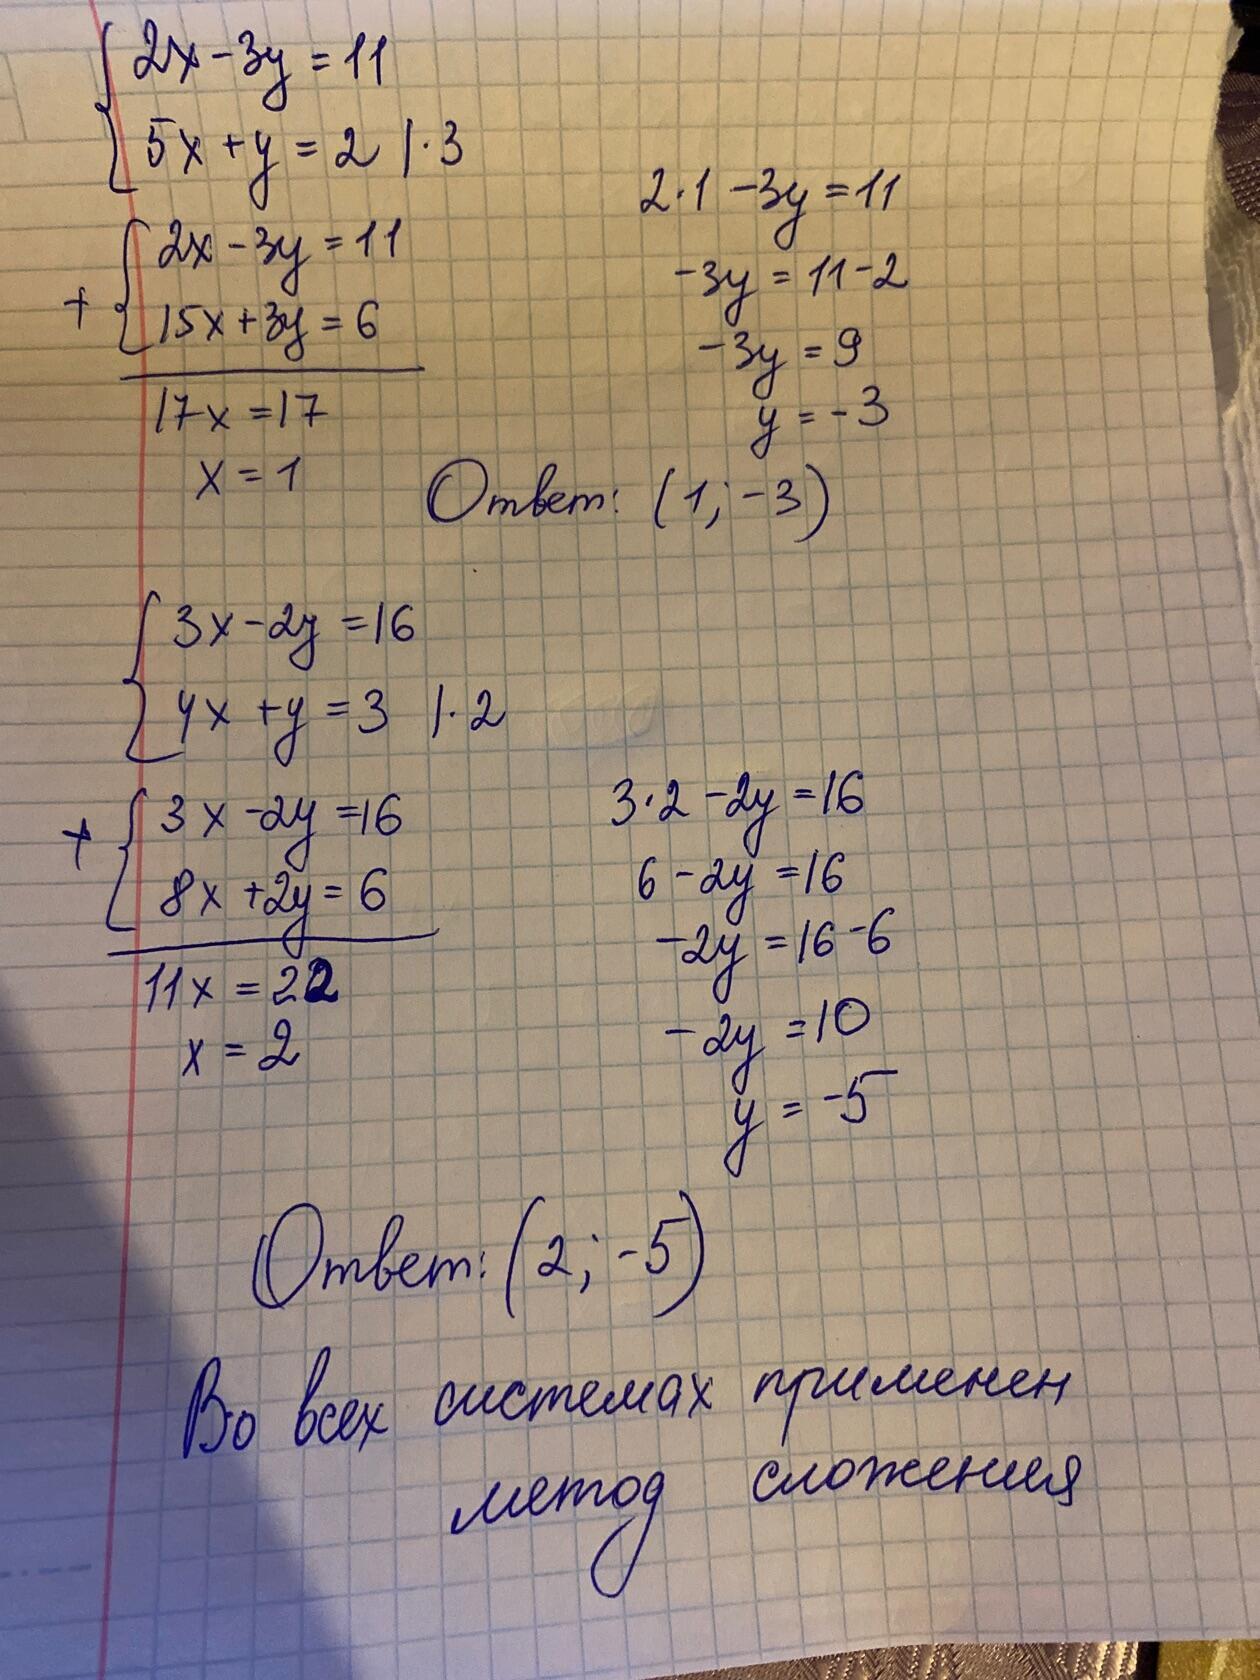 2x - 3y = 11
5x + y = 2 | · 3
2x - 3y = 11
+ 15x + 3y = 6
17x = 17
x = 1
2 · 1 - 3y = 11
-3y = 11 - 2
-3y = 9
y = -3
Ответ: (1; -3)
3x - 2y = 16
4x + y = 3 | · 2
3x - 2y = 16
+ 8x + 2y = 6
11x = 22
x = 2
3 · 2 - 2y = 16
6 - 2y = 16
-2y = 16 - 6
-2y = 10
y = -5
Ответ: (2; -5)
Во всех системах применен
метод сложения